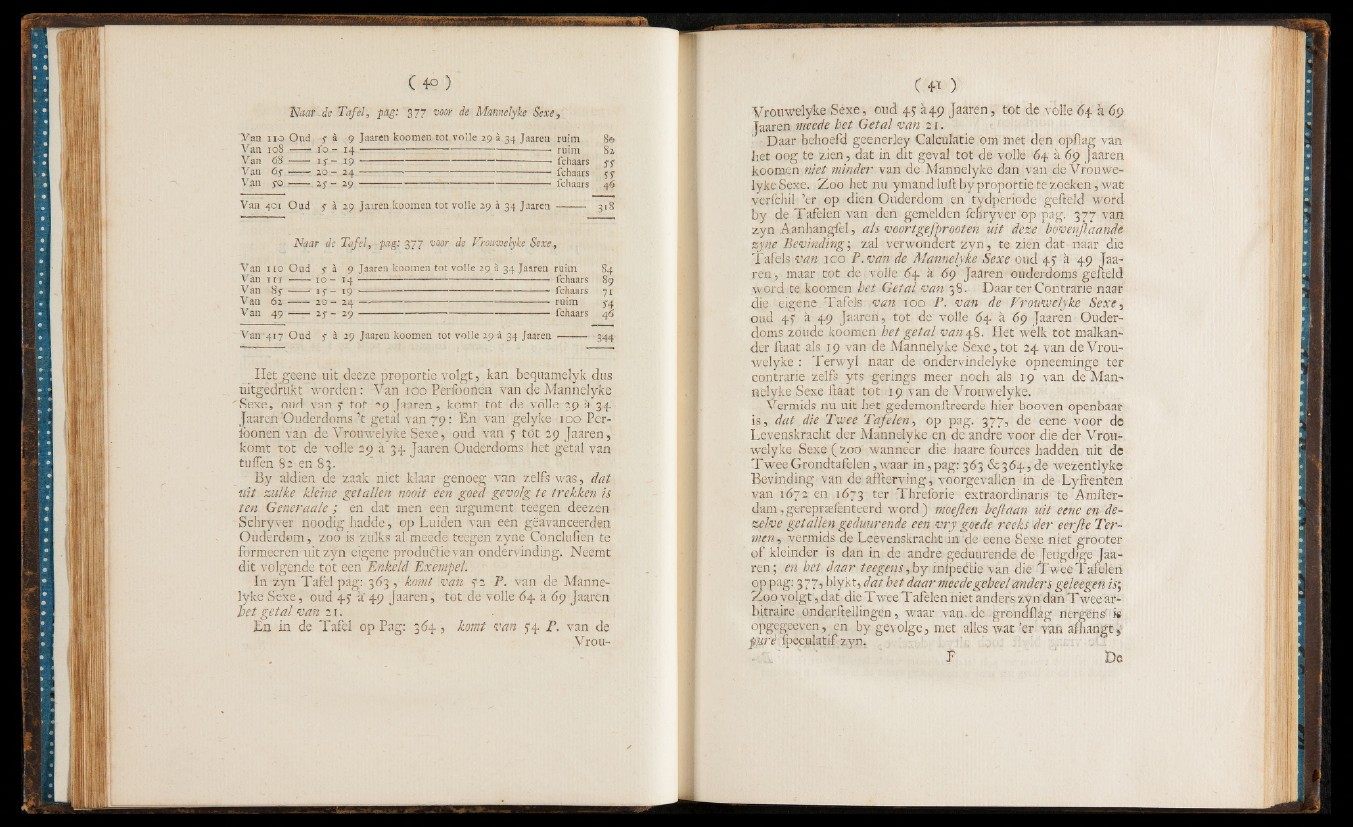 ( 40 )
Naar de Tafel, pag: 377 voor de Mannelyke Sexe,
Van 110 Oud 5 à 9 Jaaren koomen tot volle 29 à 34 Jaaren ruim 80
Van 108 —— 10 - 14 —— ruim 82
Van 68 —— 15 - 19 —— schaars 55
Van 65 —— 20 - 24 —— schaars 55
Van 50 —— 25 - 29 —— schaars 46
Van 401 Oud 5 à 29 Jaaren koomen tot volle 29 à 34 Jaaren —— 318
Naar de Tafel, pag: 377 voor de Vrouwelyke Sexe,
Van 110 Oud 5 à 9 Jaaren koomen tot volle 29 à 34 Jaaren ruim 84
Van 111 —— 10 - 14 —— schaars 89
Van 85 —— 15 - 19 —— schaars 71
Van 62 —— 20 - 24 —— ruim 54
Van 49 —— 25 - 29 —— schaars 46
Van 417 Oud 5 à 29 Jaaren koomen tot volle 29 à 34 Jaaren —— 344
Het geene uit deeze proportie volgt, kan bequamelyk dus
uitgedrukt worden: Van 100 Persoonen van de Mannelyke
Sexe, oud van 5 tot 29 Jaaren, komt tot de volle 29 à 34
Jaaren Ouderdoms 't getal van 79: En van gelyke 100 Per-
soonen van de Vrouwelyke Sexe, oud van 5 tot 29 Jaaren,
komt tot de volle 29 à 34 Jaaren Ouderdoms het getal van
tussen 82 en 83.
By aldien de zaak niet klaar genoeg van zelfs was, dat
uit zulke kleine getallen nooit een goed gevolg te trekken is
ten Generaale; en dat men een argument teegen deezen
Schryver noodig hadde, op Luiden van een geävanceerden
Ouderdom, zoo is zulks al meede teegen zyne Conclusien te
formeeren uit zyn eigene productie van ondervinding. Neemt
dit volgende tot een Enkeld Exempel.
In zyn Tafel pag: 363, komt van 52 P. van de Manne-
lyke Sexe, oud 45 à 49 Jaaren, tot de volle 64 à 69 Jaaren
het getal van 21.
En in de Tafel op Pag: 364, komt van 54 P. van de
Vrou-
( 41 )
Vrouwelyke Sexe, oud 45 à 49 Jaaren, tot de volle 64 à 69
Jaaren meede het Getal van 21.
Daar behoefd geenerley Calculatie om met den opslag van
het oog te zien, dat in dit geval tot de volle 64 à 69 Jaaren
koomen niet minder van de Mannelyke dan van de Vrouwe-
lyke Sexe. Zoo het nu ymand lust by proportie te zoeken, wat
verschil 'er op dien Ouderdom en tydperiode gesteld word
by de Tafelen van den gemelden schryver op pag. 377 van
zyn Aanhangsel, als voortgesprooten uit deze bovenstaande
zyne Bevinding; zal verwondert zyn, te zien dat naar die
Tafels van 100 P. van de Mannelyke Sexe oud 45 à 49 Jaa-
ren, maar tot de volle 64 à 69 Jaaren ouderdoms gesteld
word te koomen het Getal van 38. Daar ter Contrarie naar
die eigene Tafels van 100 P. van de Vrouwelyke Sexe,
oud 45 à 49 Jaaren, tot de volle 64 à 69 Jaaren Ouder-
doms zoude koomen het getal van 48. Het welk tot malkan-
der staat als 19 van de Mannelyke Sexe, tot 24 van de Vrou-
welyke: Terwyl naar de ondervindelyke opneeminge ter
contrarie zelfs yts gerings meer noch als 19 van de Man-
nelyke Sexe staat tot 19 van de Vrouwelyke.
Vermids nu uit het gedemonstreerde hier booven openbaar
is, dat die Twee Tafelen, op pag. 377, de eene voor de
Levenskracht der Mannelyke en de andre voor die der Vrou-
welyke Sexe (zoo wanneer die haare sources hadden uit de
Twee Grondtafelen, waar in, pag: 363 & 364, de wezentlyke
Bevinding van de afsterving, voorgevallen in de Lyfrenten
van 1672 en 1673 ter Thresorie extraordinaris te Amster-
dam, gerepræsenteerd word) moesten bestaan uit eene en de-
zelve getallen geduurende een vry goede reeks der eerste Ter-
men, vermids de Leevenskracht in de eene Sexe niet grooter
of kleinder is dan in de andre geduurende de Jeugdige Jaa-
ren; en het daar teegens, by inspectie van die Twee Tafelen
op pag: 377, blykt, dat het daar meede geheel anders geleegen is;
Zoo volgt, dat die Twee Tafelen niet anders zyn dan Twee ar-
bitraire onderstellingen, waar van de grondslag nergens is
opgegeeven, en by gevolge, met alles wat 'er van afhangt,
pure speculatif zyn.
F De